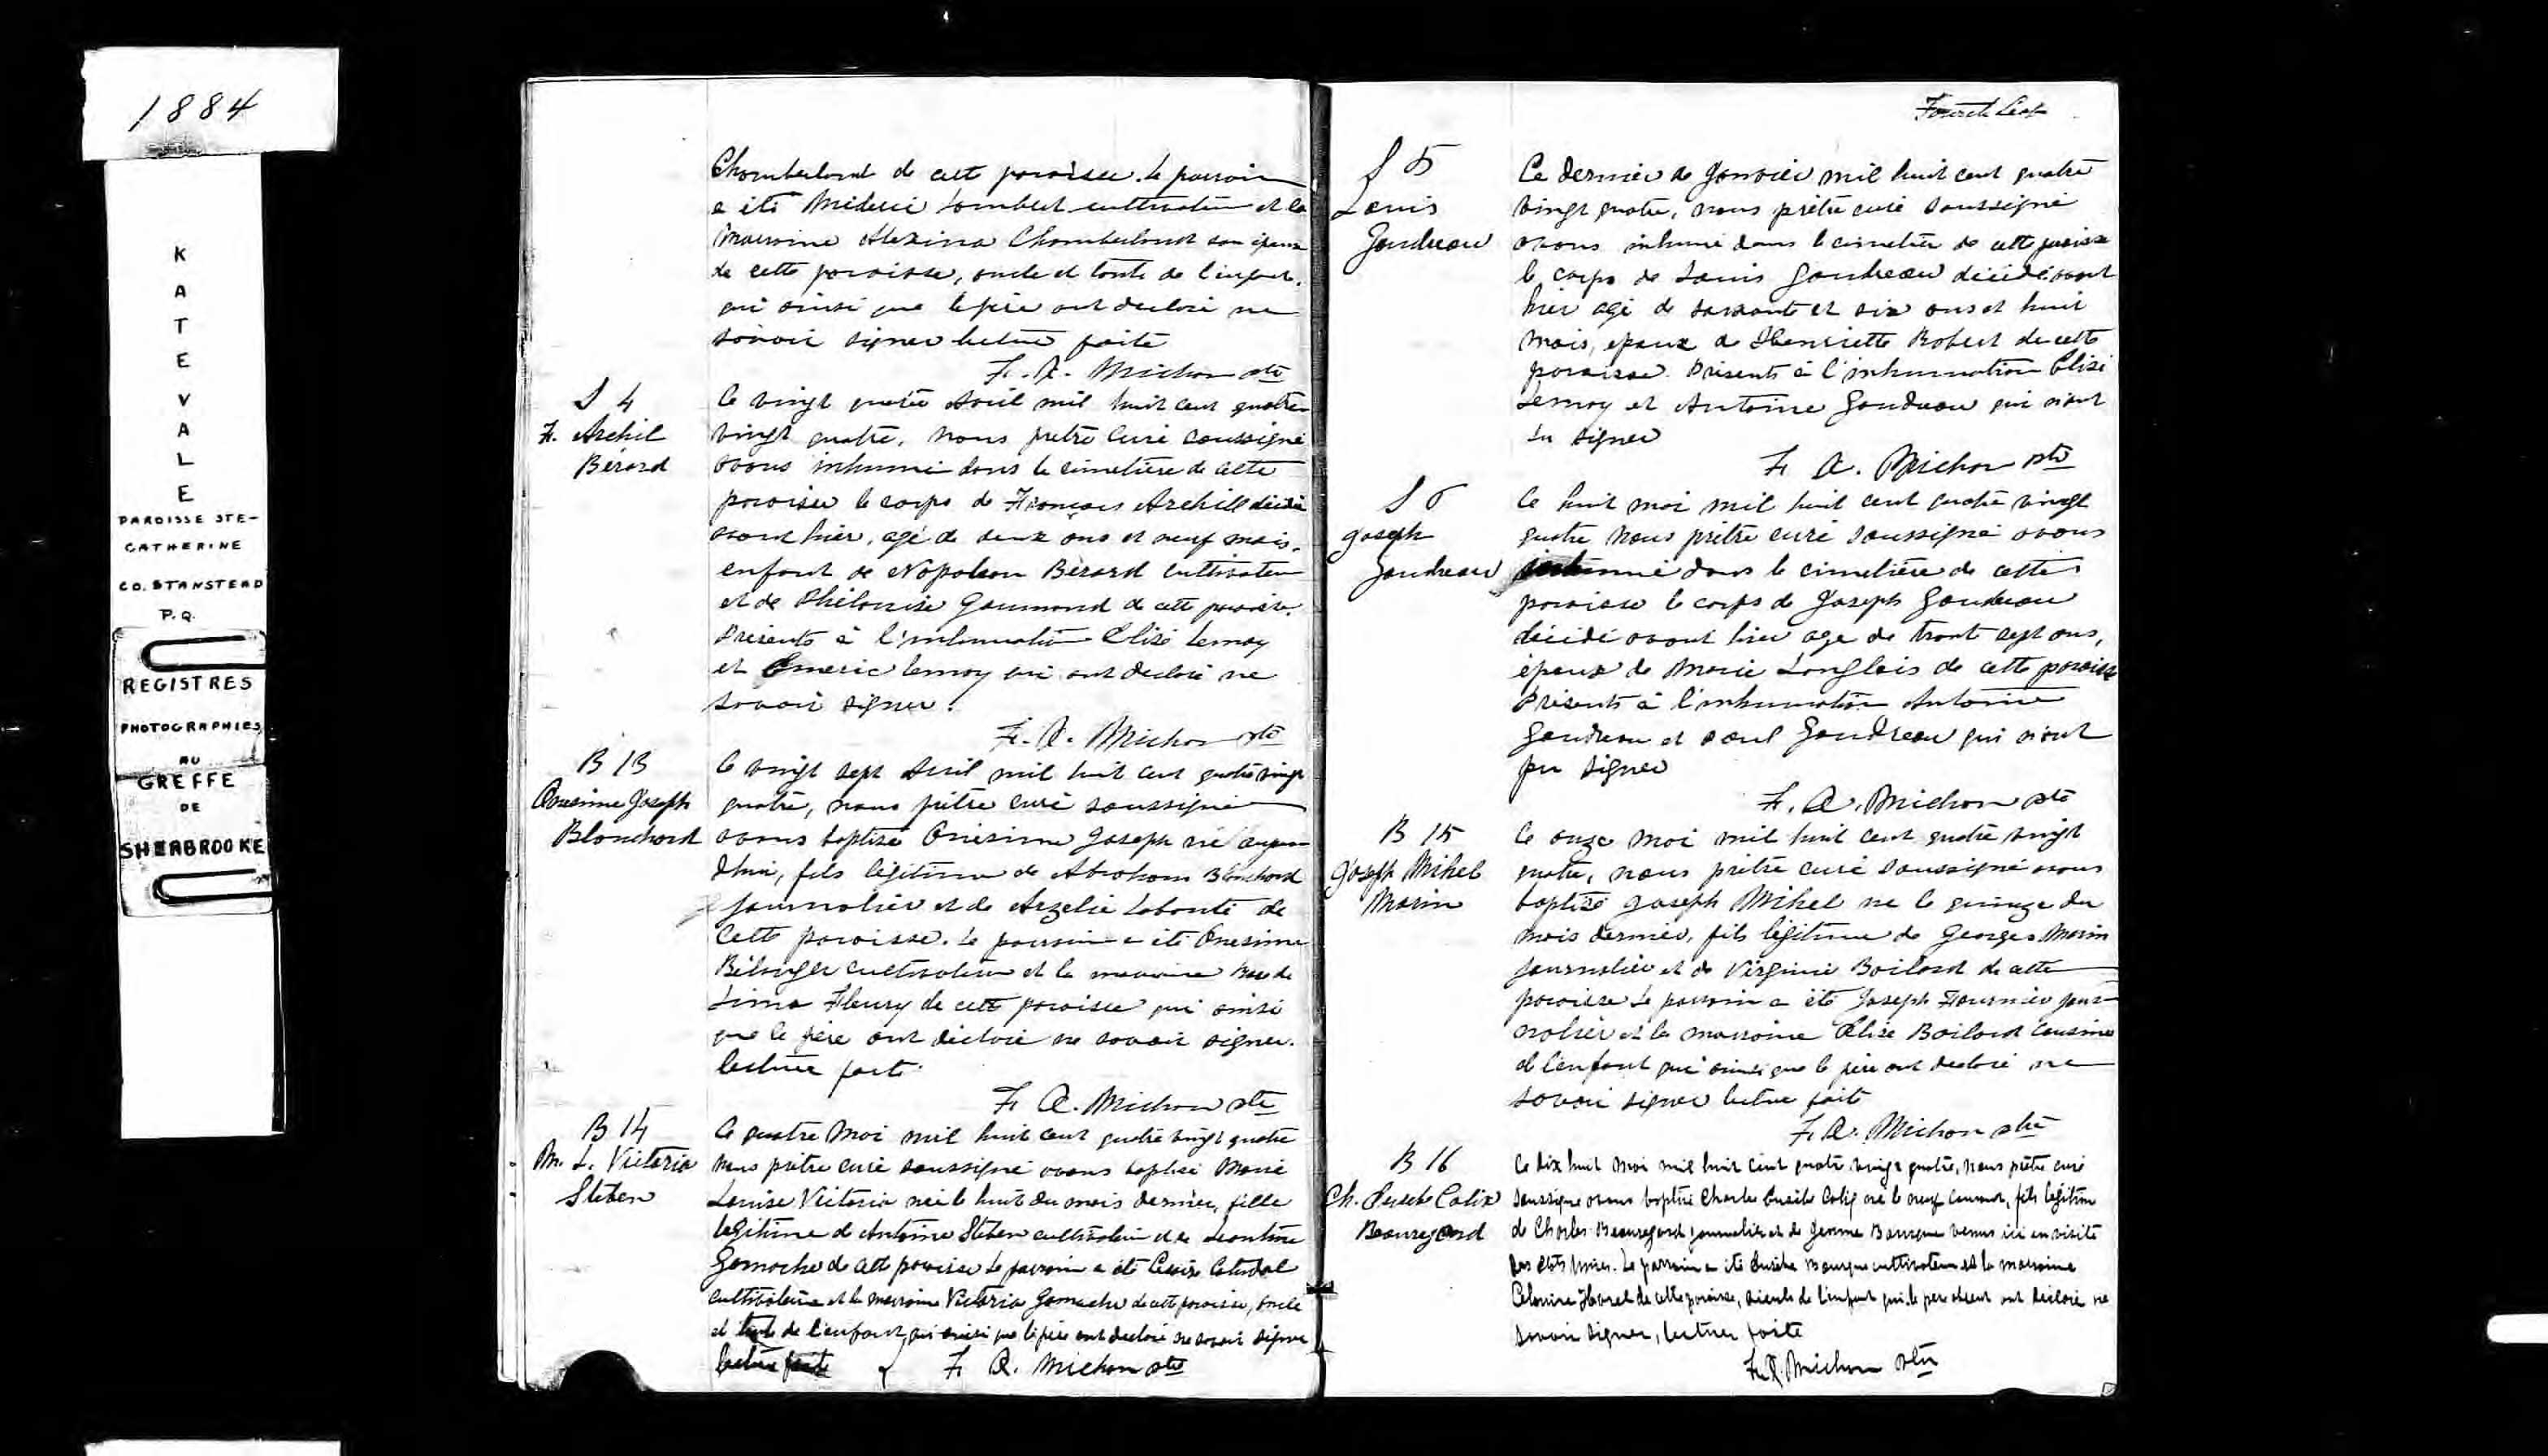 1884
K
A
T
E
V
A
L
E
PAROISSE STE-
CATHERINE
CO. STANSTEAD
P.Q.
REGISTRES
PHOTOGRAPHIES
AU
GREFFE
DE
SHERBROOKE
Chamberland de cette paroisse. Le parrain
a été Médéric Lambert cultivateur et la
marraine Alexina Chamberland son épouse
de cette paroisse, oncle et tante de l'enfant.
qui ainsi que le père ont declaré ne
savoir signer lecture faite
F. A. Michon ptre
S 4
F. Archil
Bérard
Ce vingt quatre Avril mil huit cent quatre
vingt quatre, nous prêtre Curé soussigné
avons inhumé dans le cimetière de cette
paroisse le corps de François Archill décédé
avant hier, agé de deux ans et neuf mois,
enfant de Napoléon Bérard cultivateur
et de Philomise Gaumond de cette paroisse.
Présents à l'inhumation Elisé Lemay
et Emeric Lemay qui ont declaré ne
savoir signer.
F. A. Michon ptre
B 13
Onesime Joseph
Blanchard
Ce vingt sept Avril mil huit cent quatre vingt
quatre, nous prêtre curé soussigné
avons baptisé Onésime Joseph né aujour
d'hui, fils légitime de Abraham Blanchard
journalier et de Arzelie Labonté de
cette paroisse. Le parrain a été Onesime
Bélanger cultivateur et la marraine Rose de
Lima Fleury de cette paroisse qui ainsi
que le père ont déclaré ne savoir signer.
lecture faite
F. A. Michon ptre
B 14
M. L. Victoria
Steben
Ce quatre Mai mil huit cent quatre vingt quatre
nous prêtre curé soussigné avons baptisé Marie
Louise Victoria née le huit du mois dernier, fille
légitime d'Antoine Steben cultivateur et de Leontine
Gamache de cette paroisse Le parrain a été
cultivateur et la marraine Victoria Gamache de cette paroisse, oncle
et tante de l'enfant, qui ainsi que le père ont declaré ne savoir signer
lecture faite F. A. Michon ptre
Fourth Leaf
S 5
Louis
Gaudreau
Ce dernier de Janvier mil huit cent quatre
vingt quatre, nous prêtre curé soussigné
avons inhumé dans le cimetière de cette paroisse
le corps de Louis Gaudreau décédé avant
hier agé de soixante et six ans et huit
mois, epoux de Henriette Robert de cette
paroisse. Présents à l'inhumation Elisé
Lemay et Antoine Gaudreau qui n'ont
su signer
F. A. Michon ptre
S 6
Joseph
Gaudreau
Ce huit mai mil huit cent quatre vingt
quatre nous prêtre curé soussigné avons
inhumé dans le cimetière de cette
paroisse le corps de Joseph Gaudreau
décédé avant hier age de trente sept ans,
époux de Marie Langlois de cette paroisse
Présents à l'inhumation Antoine
Gaudreau et Paul Gaudreau qui n'ont
pu signer
F. A. Michon ptre
B 15
Joseph Mikel
Morin
Ce onze Mai mil huit cent quatre vingt
quatre, nous prêtre curé soussigné avons
baptisé Joseph Mikel né le quinze du
mois dernier, fils légitime de Georges Morin
journalier et de Virginie Boilard de cette
paroisse Le parrain a été Joseph Fournier jour-
nalier et la marraine Elise Boilard cousine
de l'enfant qui ainsi que le père ont declaré ne
savoir signer lecture faite
F. A. Michon ptre
B 16
Ch. Eusebe Calix
Beauregard
Ce dix huit Mai mil huit cent quatre vingt quatre, nous prêtre curé
soussigné avons baptisé Charles Eusèbe Calix né le neuf courant, fils légitime
de Charles Beauregard journalier et de Bourque venus ici en visite
des Etats Unies. Le parrain a été Eusèbe Bourque cultivateur et la marraine
Harel de cette paroisse, aieuls de l'enfant qui, le père absent ont déclaré ne
savoir signer, lecture faite
F. A. Michon ptre